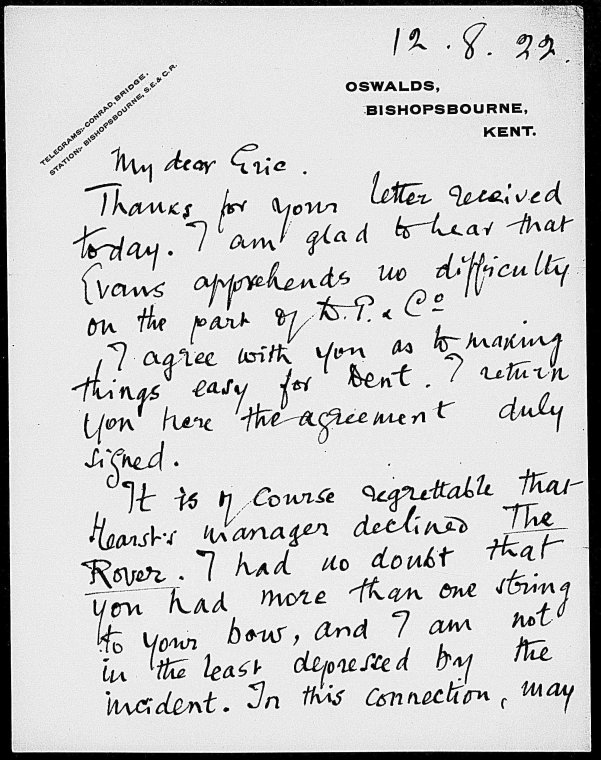 12.8.22.
TELEGRAMS:- CONRAD, BRIDGE.
STATION:- BISHOPSBOURNE, S.E. & C.R.
OSWALDS,
BISHOPSBOURNE,
KENT.
My dear Eric.
Thanks for your letter received
today. I am glad to hear that
Evans apprehends no difficulty
on the part of D.P. & Co
I agree with you as to making
things easy for Dent. I return
you here the agreement duly
signed.
It is of course regrettable that
Hearst's manager declined The
Rover. I had no doubt that
you had more than one string
to your bow, and I am not
in the least depressed by the
incident. In this connection, may